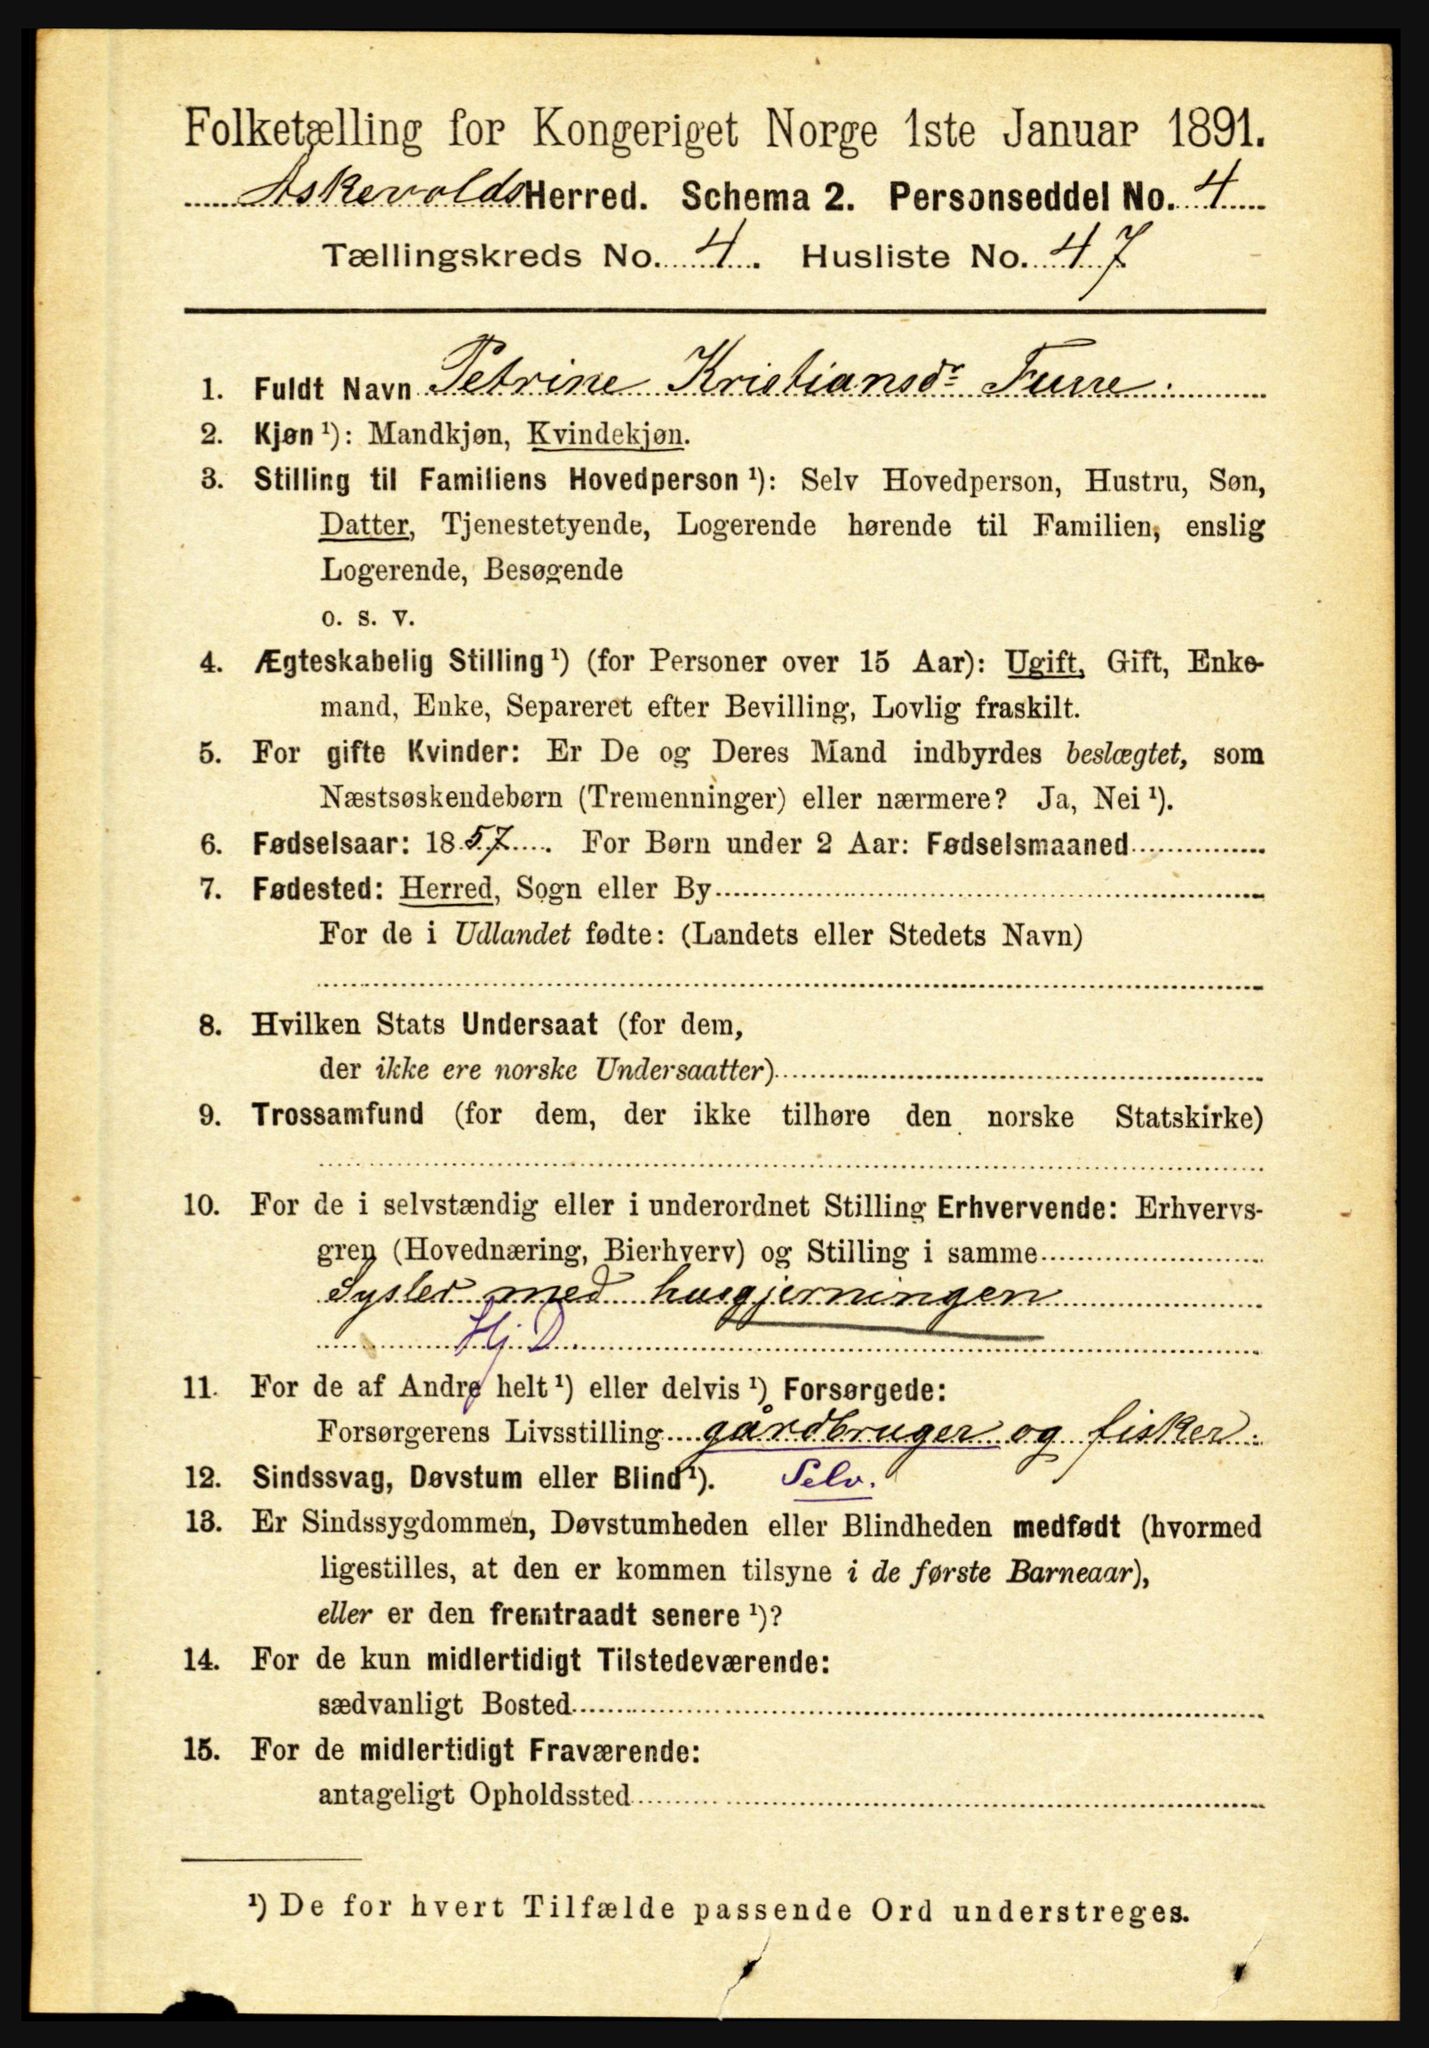 Folketælling for Kongeriget Norge 1ste Januar 1891.
Askevolds Herred. Schema 2. Personseddel No. 4
Tællingskreds No. 4. Husliste No. 47
1. Fuldt Navn Petrine Kristiansdr Furre.
2. Kjøn ¹): Mandkjøn, Kvindekjøn.
3. Stilling til Familiens Hovedperson ¹): Selv Hovedperson, Hustru, Søn,
Datter, Tjenestetyende, Logerende hørende til Familien, enslig
Logerende, Besøgende
o. s. v.
4. Ægteskabelig Stilling ¹) (for Personer over 15 Aar): Ugift, Gift, Enke-
mand, Enke, Separeret efter Bevilling, Lovlig fraskilt.
5. For gifte Kvinder: Er De og Deres Mand indbyrdes beslægtet, som
Næstsøskendebørn (Tremenninger) eller nærmere? Ja, Nei ¹).
6. Fødselsaar: 1857. For Børn under 2 Aar: Fødselsmaaned
7. Fødested: Herred, Sogn eller By
For de i Udlandet fødte: (Landets eller Stedets Navn)
8. Hvilken Stats Undersaat (for dem,
der ikke ere norske Undersaatter)
9. Trossamfund (for dem, der ikke tilhøre den norske Statskirke)
10. For de i selvstændig eller i underordnet Stilling Erhvervende: Erhvervs-
gren (Hovednæring, Bierhverv) og Stilling i samme
Sysler med husgjerningen
Hj D.
11. For de af Andre helt ¹) eller delvis ¹) Forsørgede:
Forsørgerens Livsstilling gårdbruger og fisker.
12. Sindssvag, Døvstum eller Blind ¹). Selv.
13. Er Sindssygdommen, Døvstumheden eller Blindheden medfødt (hvormed
ligestilles, at den er kommen tilsyne i de første Barneaar),
eller er den fremtraadt senere ¹)?
14. For de kun midlertidigt Tilstedeværende:
sædvanligt Bosted
15. For de midlertidigt Fraværende:
antageligt Opholdssted
¹) De for hvert Tilfælde passende Ord understreges.